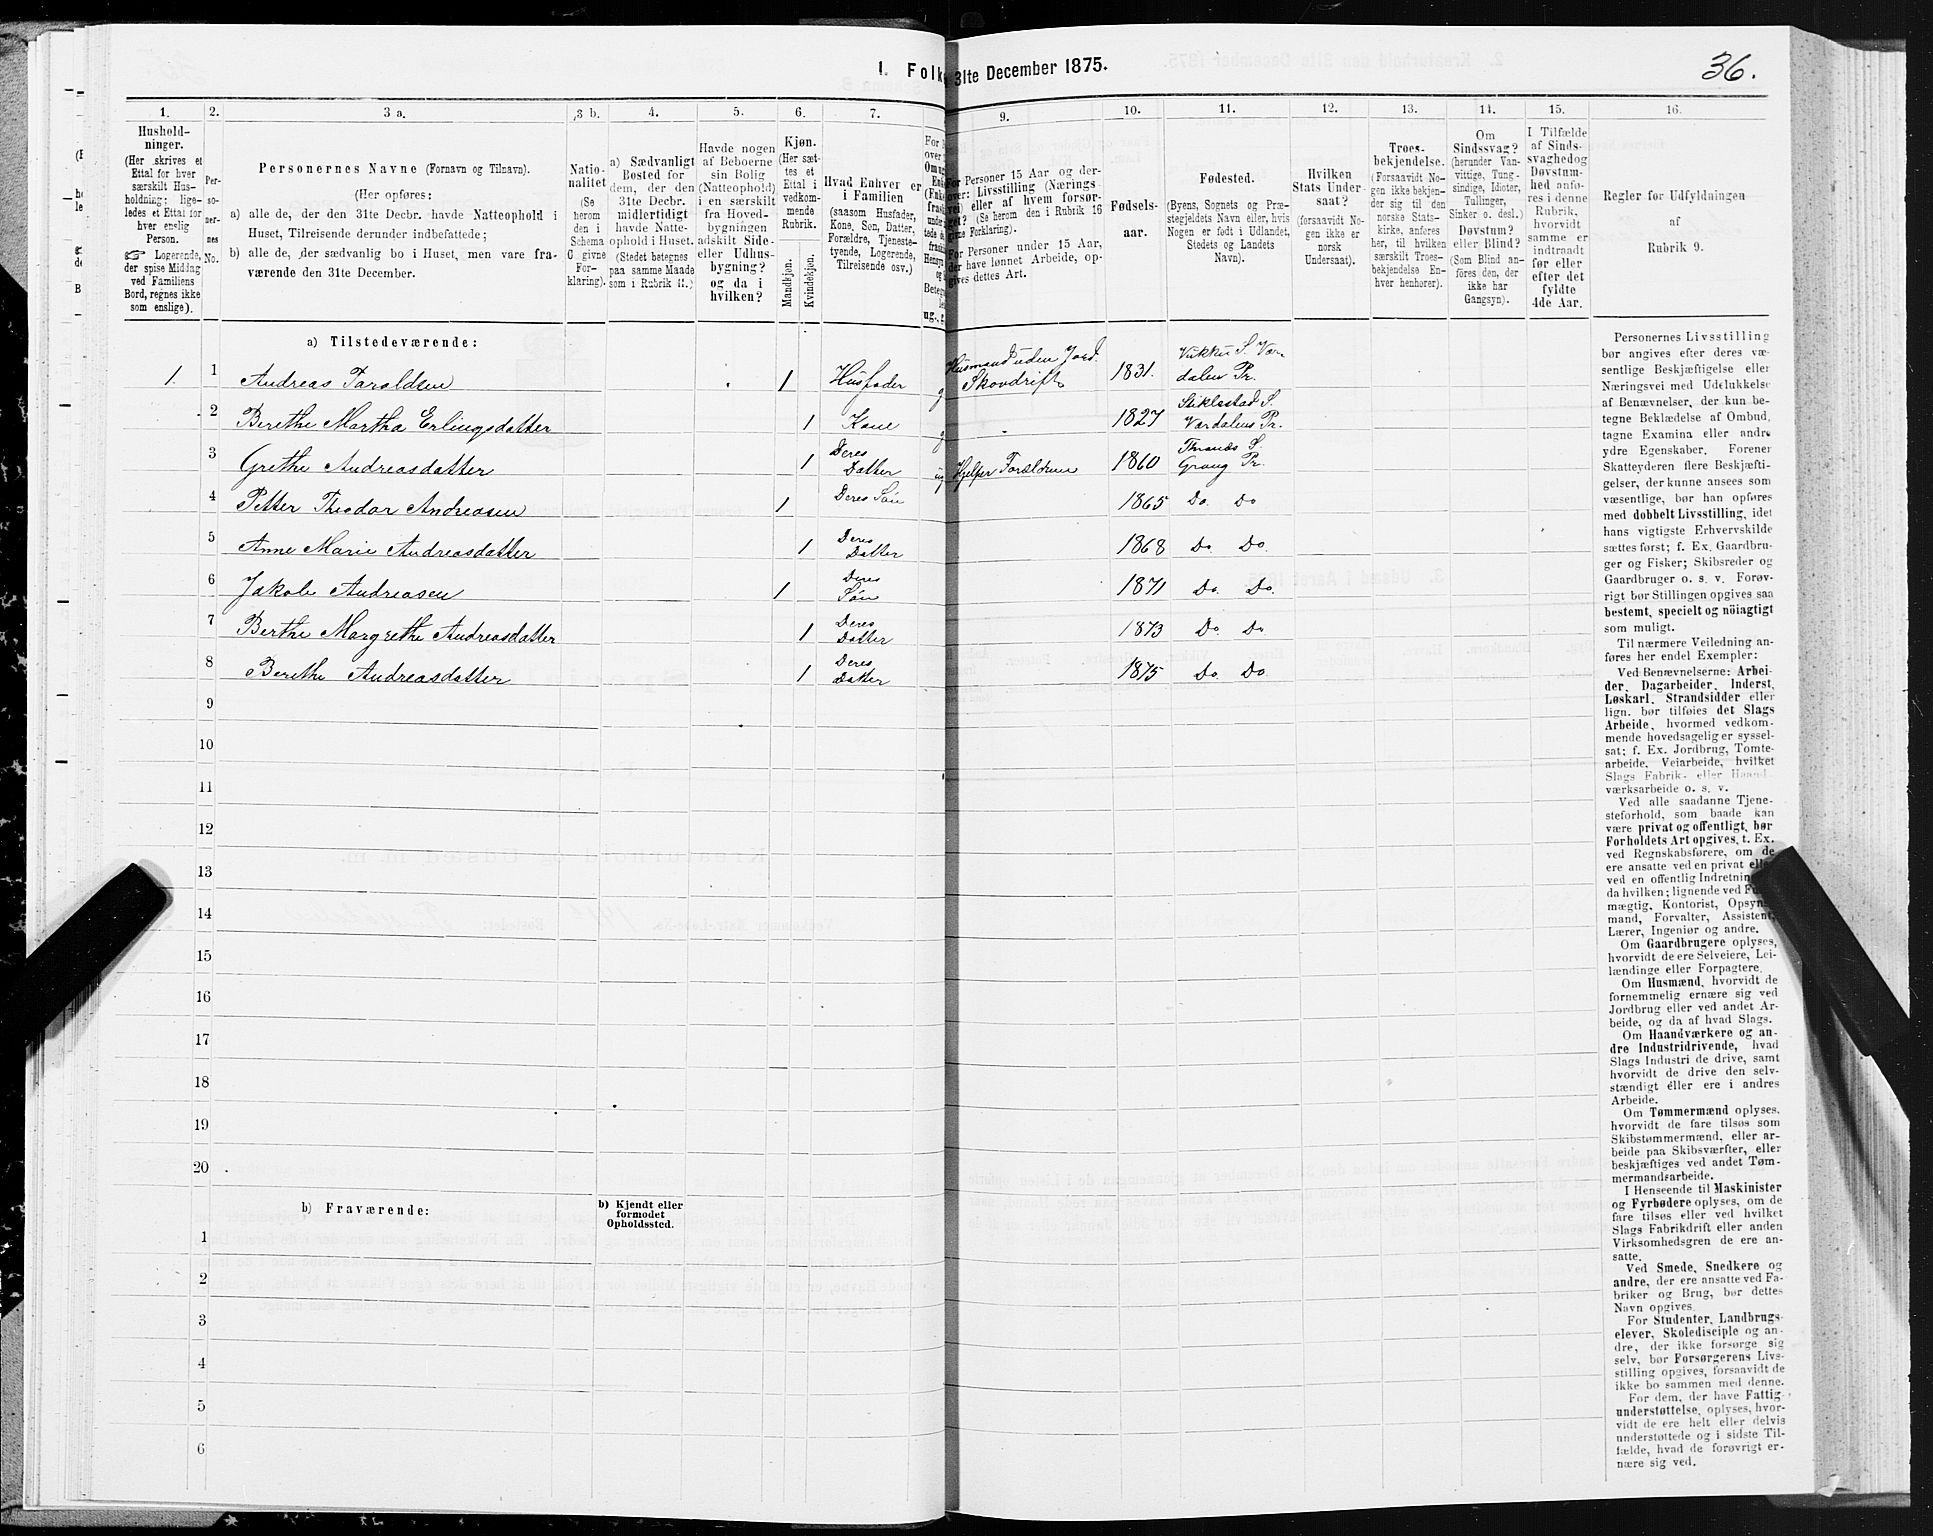 1. Folk 31te December 1875.
36.
1.
Hushold-
ninger.
(Her skrives et
Ettal for hver
særskilt Hus-
holdning; lige-
ledes et Ettal for
hver enslig
Person.
☞ Logerende,
der spise Middag
ved Familiens
Bord, regnes ikke
som enslige).
2.
Per-
so-
ner-
nes
No.
3 a.
Personernes Navne (Fornavn og Tilnavn).
(Her opføres:
a) alle de, der den 31te Decbr. havde Natteophold i
Huset, Tilreisende derunder indbefattede;
b) alle de, der sædvanlig bo i Huset, men vare fra-
værende den 31te December.
3 b.
Natio-
nalitet
(Se
herom
den i
Schema
C givne
For-
klaring).
4.
a) Sædvanligt
Bosted for
dem, der den
31te Decbr.
midlertidigt
havde Natte-
ophold i Huset.
(Stedet betegnes
paa samme Maade
som i Rubrik 11.)
5.
Havde nogen
af Beboerne
sin Bolig
(Natteophold)
i en særskilt
fra Hoved-
bygningen
adskilt Side-
eller Udhus-
bygning?
og da i
hvilken?
6.
Kjøn.
(Her sæt-
tes et
Ettal i
vedkom-
mende
Rubrik.
Mandkjøn.
Kvindekjøn.
7.
Hvad Enhver er
i Familien
(saasom Husfader,
Kone, Søn, Datter,
Forældre, Tjeneste-
tyende, Logerende,
Tilreisende osv.)
9.
For Personer 15 Aar og der-
over: Livsstilling (Nærings-
vei) eller af hvem forsør-
get? (Se herom den i Rubrik 16
givne Forklaring).
For Personer under 15 Aar,
der have lønnet Arbeide, op-
gives dettes Art.
10.
Fødsels-
aar.
11.
Fødested.
(Byens, Sognets og Præ-
stegjeldets Navn eller, hvis
Nogen er født i Udlandet,
Stedets og Landets
Navn).
12.
Hvilken
Stats Under-
saat?
(forsaavidt No-
gen ikke er
norsk
Undersaat).
13.
Troes-
bekjendelse.
(Forsaavidt No-
gen ikke bekjen-
der sig til den
norske Stats-
kirke, anføres
her, til hvilken
særskilt Troes-
bekjendelse En-
hver henhører).
14.
Om
Sindssvag?
(herunder Van-
vittige, Tung-
sindige, Idioter,
Tullinger,
Sinker o. desl.)
Døvstum?
eller Blind?
(Som Blind an-
føres den, der
ikke har
Gangsyn).
15.
I Tilfælde
af Sinds-
svaghed og
Døvstum-
hed anfø-
res i denne
Rubrik,
hvorvidt
samme er
indtraadt
før eller
efter det
fyldte
4de Aar.
16.
Regler for Udfyldningen
af
Rubrik 9.
a) Tilstedeværende:
1. 1 Andreas Taraldsen 1 Husfader g Husmand uden Jord. Skovdrift 1831. Vukku S. Vær-
dalen Pr.
2 Berethe Martha Erlingsdatter 1 Kone g 1827 Stiklestad S.
Værdalens Pr.
3 Grethe Andreasdatter 1 Deres Datter ug Hjelper Forældrene 1860 Thranæs S.
Grong Pr.
4 Petter Theodor Andreasen 1 Deres Søn 1865 Do. Do
5 Anne Marie Andreasdatter 1 Deres Datter 1868 Do. Do.
6 Jakob Andreasen 1 Deres Søn 1871 Do. Do.
7 Berthe Margrethe Andreasdatter 1 Deres Datter 1873 Do. Do
8 Berethe Andreasdatter 1 Deres Datter 1875 Do. Do
9
10
11
12
13
14
15
16
17
18
19
20
b) Fraværende:
b) Kjendt eller
formodet
Opholdssted.
1
2
3
4
5
6
Personernes Livsstilling
bør angives efter deres væ-
sentlige Beskjæftigelse eller
Næringsvei med Udelukkelse
af Benævnelser, der kun be-
tegne Beklædelse af Ombud,
tagne Examina eller andre
ydre Egenskaber. Forener
Skatteyderen flere Beskjæfti-
gelser, der kunne ansees som
væsentlige, bør han opføres
med dobbelt Livsstilling, idet
hans vigtigste Erhvervskilde
sættes først; f. Ex. Gaardbru-
ger og Fisker; Skibsreder og
Gaardbruger o. s. v. Forøv-
rigt bør Stillingen opgives saa
bestemt, specielt og nöiagtigt
som muligt.
Til nærmere Veiledning an-
føres her endel Exempler:
Ved Benævnelserne: Arbei-
der, Dagarbeider, Inderst,
Løskarl, Strandsidder eller
lign. bør tilføies det Slags
Arbeide, hvormed vedkom-
mende hovedsagelig er syssel-
sat; f. Ex. Jordbrug, Tomte-
arbeide, Veiarbeide, hvilket
Slags Fabrik- eller Haand-
værksarbeide o. s. v.
Ved alle saadanne Tjene-
steforhold, som baade kan
være privat og offentligt, bør
Forholdets Art opgives, t. Ex.
ved Regnskabsførere, om de
ere ansatte ved en privat eller
ved en offentlig Indretning,
da hvilken; lignende ved Fuld-
mægtig, Kontorist, Opsyns-
mand, Forvalter, Assistent,
Lærer, Ingeniør og andre.
Om Gaardbrugere oplyses,
hvorvidt de ere Selveiere, Lei-
lændinge eller Forpagtere.
Om Husmænd, hvorvidt de
fornemmelig ernære sig ved
Jordbrug eller ved andet Ar-
beide, og da af hvad Slags.
Om Haandværkere og an-
dre Industridrivende, hvad
Slags Industri de drive, samt
hvorvidt de drive den selv-
stændigt eller ere i andres
Arbeide.
Om Tømmermænd oplyses,
hvorvidt de fare tilsøs som
Skibstømmermænd, eller ar-
beide paa Skibsværfter, eller
beskjæftiges ved andet Tøm-
mermandsarbeide.
I Henseende til Maskinister
og Fyrbødere oplyses, om de
fare tilsøs eller ved hvilket
Slags Fabrikdrift eller anden
Virksomhedsgren de ere an-
satte.
Ved Smede, Snedkere og
andre, der ere ansatte ved Fa-
briker og Brug, bør dettes
Navn opgives.
For Studenter, Landbrugs-
elever, Skoledisciple og an-
dre, der ikke forsørge sig
selv, bør Forsørgerens Livs-
stilling opgives, forsaavidt de
ikke bo sammen med denne.
For dem, der have Fattig-
understøttelse, oplyses, hvor-
vidt de ere helt eller delvis
understøttede og i sidste Til-
fælde, hvad de forøvrigt er-
nære sig ved.